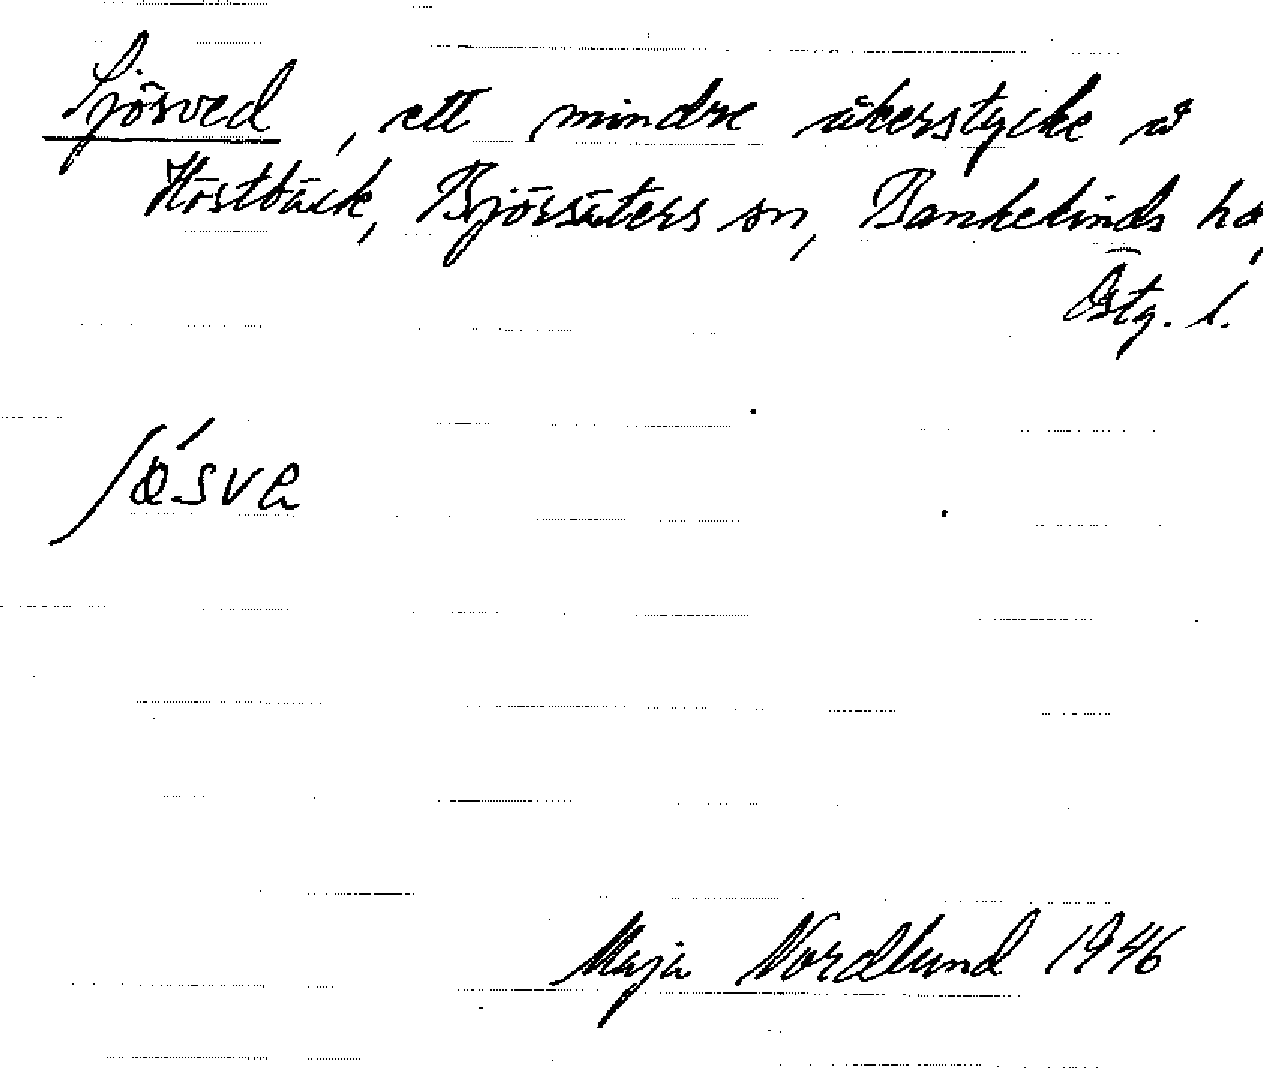 Sjösved, ett mindre åkerstycke å
Höstbäck, Björsäters sn, Bankekinds hd,
Östg. l.
ʃø´sve
Maja Nordlund 1946